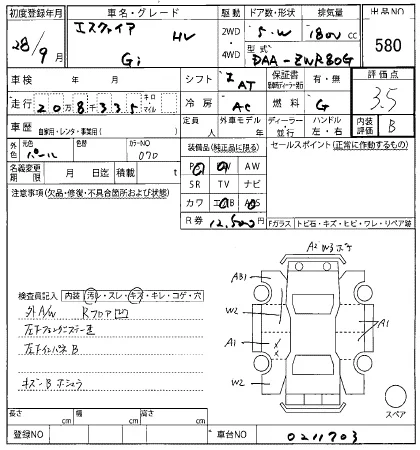 初度登録年月 車名・グレード 駆動 ドア数・形状 排気量 出品NO
28/9月 エスクァイア HV Gi 2WD・4WD 5・W 1800 cc 580
型式 DAA-ZWR80G
車検 年 月 シフト I AT 保証書 新車時ディーラー発行 有・無 評価点
走行 20万8千335 キロ・マイル 冷房 AC 燃料 G 3.5
車歴 自家用・レンタ・事業用( ) 定員 人 外車モデル 年 ディーラー・並行 ハンドル 左・右 内装評価 B
外色 元色 パール 色替 カラーNO 070 装備品(純正品に限る) セールスポイント(正常に作動するもの)
名義変更期限 月 日迄 積載 t PS PW AW
注意事項(欠品・修復・不具合箇所および状態) SR TV ナビ
カワ エアB ABS
R券 12,500円 Fガラス トビ石・キズ・ヒビ・ワレ・リペア跡
A2 W3 ボケ
AB1
検査員記入 内装 汚レ・スレ・キズ・キレ・コゲ・穴
外A/W Rフロア凹 W2
左下フェンダステー 歪 A1
左下インパネ B A1
W2
キズ・B ホシュウ
スペア
長さ cm 幅 cm 高さ cm
登録NO 車台NO 0211703